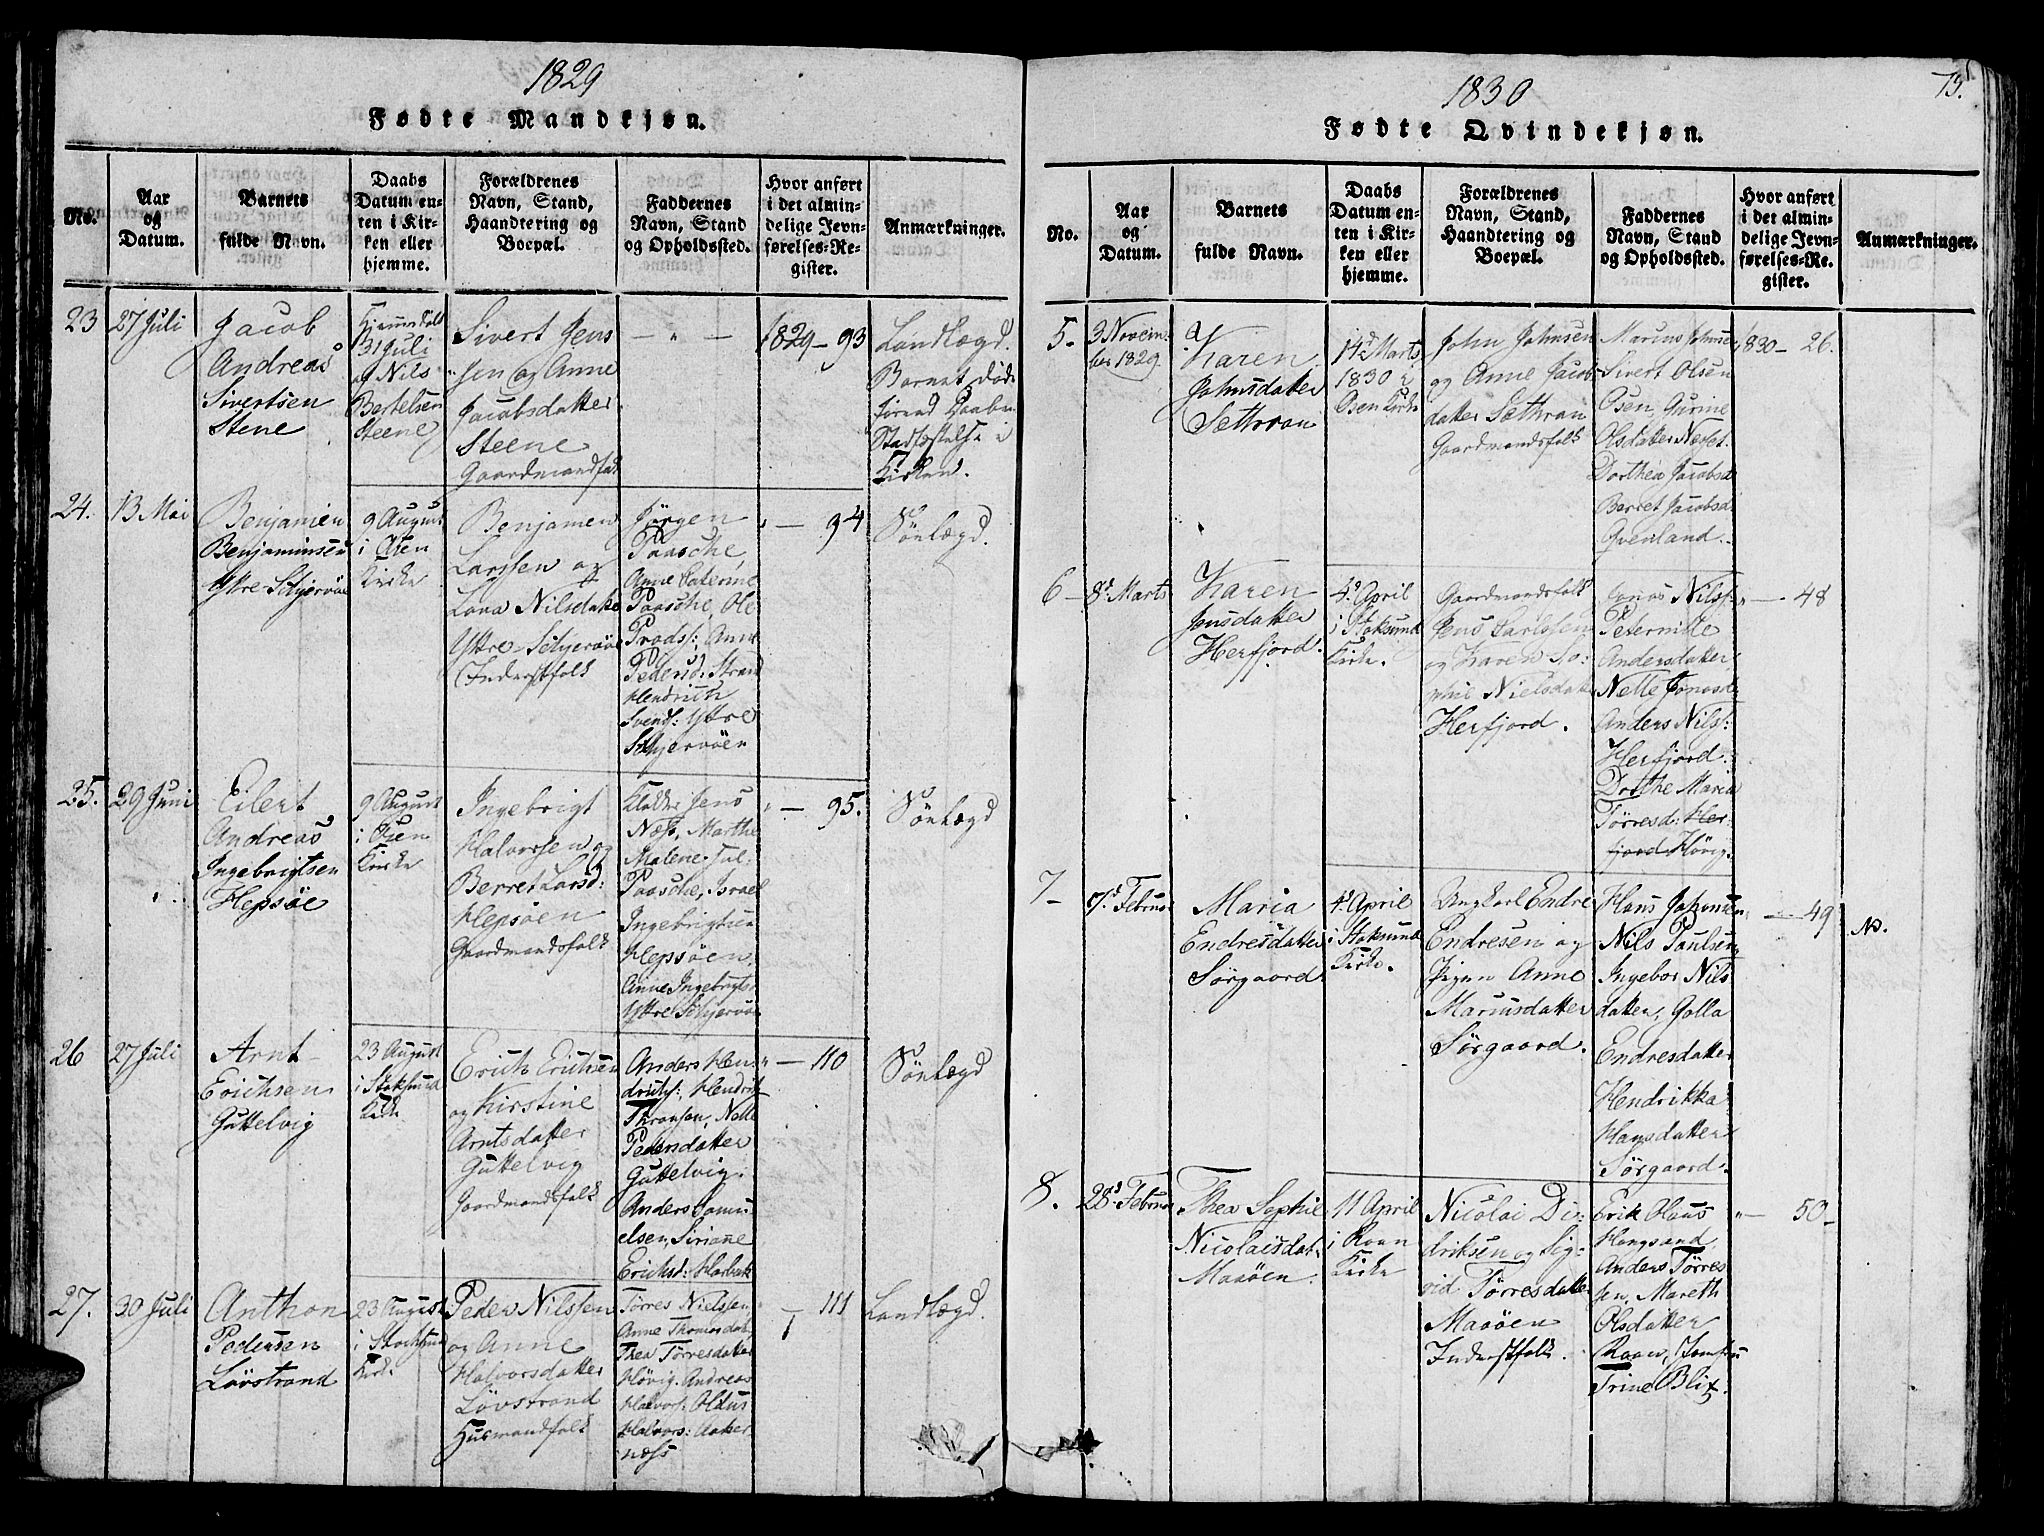 1829
Fødte Mandkjøn.
No.
Aar
og
Datum.
Barnets
fulde Navn.
Daabs
Datum en-
ten i Kir-
ken eller
hjemme.
Forældrenes
Navn, Stand,
Haandtering og
Boepæl.
Faddernes
Navn, Stand
og Opholdssted.
Hvor anført
i det almin-
delige Jevn-
førelses-Re-
gister.
Anmærkninger.
23
27 Juli
Jacob
Andreas
Sivertsen
Stene
31 Juli
og Nils
Bertelsen
Steene
Sivert Jens
sen og Anne
Jacobsdatter
Steene
Gaardmandsfolk
— " —
1829 — 93
Landlægd.
Barnet døde
førend Daabens
Stadfæstelse i
Kirken.
24.
13 Mai
Benjamin
Benjaminsen
Yttre-Schjervøe
9 August
i Osen
Kirke
Benjamen
Larssen og
Lova Nilsdatter
Yttre-Schjervøe
Inderstfolk
Jørgen
Paasche
Anne Caterine
Paasche, Ole
Pedersd: Strand
Hendrich
Svends: Yttre
Schjervøen
" — 94
Sønlægd.
25.
29 Juni
Eilert
Andreas
Ingebrigtsen
Hepsøe
9 August
i Osen
Kirke
Ingebrigt
Halvorsen og
Berret Larsd:
Hepsøen
Gaardmandsfolk
Klokker Jens
Næss, Marthe
Malene Jul:
Paasche, Israel
Ingebrigtsen
Hepsøen
Anne Ingebrigtsd
Yttre Schjervøe
" — 95.
Sønlægd
26
27 Juli
Arnt
Erichsen
Guttelvig
23 August
i Stoksund
Kirke
Erich Erichsen
og Kirstine
Arntsdatter
Guttelvig
Gaardmandsfolk
Anders Hen-
drichs: Hendrik
Thronsen, Nelle
Pedersdatter
Guttelvig.
Anders Samu
elsen, Siriane
Erichsd: Harbak
" — 110
Sønlægd
27.
30 Juli
Anthon
Pedersen
Løvstrand
23 August
i Stocksund
Kirke
Peder Nilssen
og Anne
Halvorsdatter
Løvstrand
Husmandfolk
Tørres Nielssen
Anne Thomasdat
Thea Tørresdatter
Høvig. Andreas
Halvors: Oldus
Halvors: Aaker
næss
— 111
Landlægd.
1830
75.
Fødte Qvindekjøn.
No.
Aar
og
Datum.
Barnets
fulde Navn.
Daabs
Datum en-
ten i Kir-
ken eller
hjemme.
Forældrenes
Navn, Stand,
Haandtering og
Boepæl.
Faddernes
Navn, Stand
og Opholdssted.
Hvor anført
i det almin-
delige Jevn-
førelses-Re-
gister.
Anmærkninger.
5.
3 Novem-
ber 1829
Karen
Johnsdatter
Sættran
14d Marts
1830 i
Osen Kirke
John Johnsen
og Anne Jacob-
datter Sættran
Gaardmandsfolk
Marius Johnse
Sivert Olsen
Osen, Gurine
Olsdatter Næsset
Dorthea Jacobsd
Berret Jacobsd
Qvenland.
1830 — 26.
6 —
8d Marts
Karen
Jensdatter
Herfjord.
4d April
i Stoksund
Kirke.
Gaardmandsfolk
Jens Carlssen
og Karen So-
phie Nielsdatter
Herfjord.
Jonas Nilss:
Peternille
Andersdatter
Nelle Jonasd
Anders Nilss:
Herfjord.
Dorthe Maria
Tørresd: Her-
fjord Høvig.
" — 48
7 —
7d Februar
Maria
Endresdatter
Sørgaard.
4d April
i Stoksund
Kirke.
Ungkarl Endre
Endresen og
Pigen Anne
Mariusdatter
Sørgaard.
Hans Johansen
Nils Paulsen
Ingebor Nils
datter, Golla
Endresdatter
Hendrikka
Hansdatter
Sørgaard.
— 49
8.
28d Februar
Thea Sophie
Nicolaisdat
Maaøen.
11 April
i Roan
Kirke
Nicolai Di-
driksen og Sig-
rid Tørresdatter
Maaøen
Inderstfolk.
Erik Olaus
Hongsand
Anders Tørres
sen, Mareth
Olsdatter
Roan, Jomfru
Trine Blix.
" — 50 —